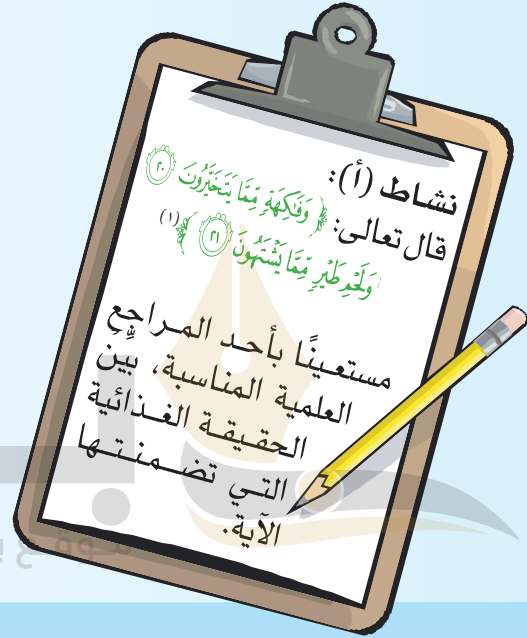 نشاط (أ):
قال تعالى: ﴿ وَفَاكِهَةٍ مِّمَّا يَتَخَيَّرُونَ ٢٠
وَلَحْمِ طَيْرٍ مِّمَّا يَشْتَهُونَ ٢١ ﴾ (١)
مستعينًا بأحد المراجع
العلمية المناسبة، بيِّن
الحقيقة الغذائية
التي تضمنتها
الآية.